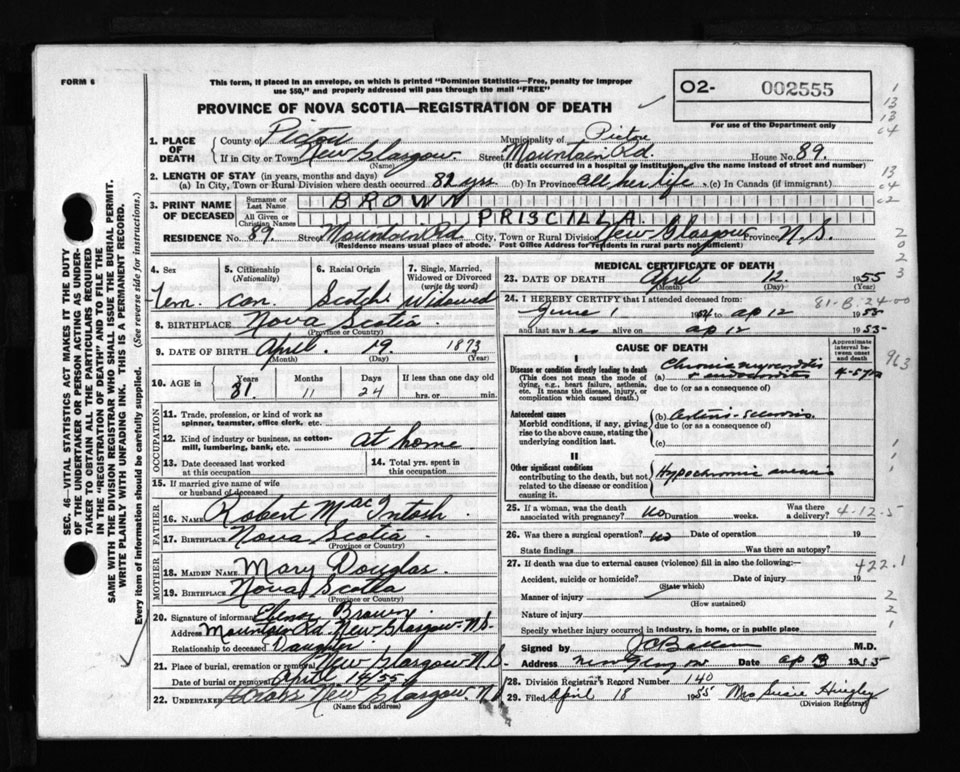 FORM 6
This form, if placed in an envelope, on which is printed "Dominion Statistics—Free, penalty for improper
use $50," and properly addressed will pass through the mail "FREE"
PROVINCE OF NOVA SCOTIA—REGISTRATION OF DEATH
O2- 002555
For use of the Department only
SEC. 46 VITAL STATISTICS ACT MAKES IT THE DUTY
OF THE UNDERTAKER OR PERSON ACTING AS UNDER-
TAKER TO OBTAIN ALL THE PARTICULARS REQUIRED
IN THE "REGISTRATION OF DEATH" AND TO FILE THE
SAME WITH THE DIVISION REGISTRAR WHO SHALL ISSUE THE BURIAL PERMIT.
WRITE PLAINLY WITH UNFADING INK. THIS IS A PERMANENT RECORD.
Every item of information should be carefully supplied. (See reverse side for instructions.)
1. PLACE OF DEATH
County of Pictou Municipality of Pictou
If in City or Town New Glasgow Street Mountain Rd. House No. 89.
(Name) (If death occurred in a hospital or institution, give the name instead of street and number)
2. LENGTH OF STAY (in years, months and days)
(a) In City, Town or Rural Division where death occurred 82 yrs (b) In Province all her life (c) In Canada (if immigrant)
3. PRINT NAME OF DECEASED
Surname or Last Name BROWN
All Given or Christian Names PRISCILLA.
RESIDENCE No. 89. Street Mountain Rd City, Town or Rural Division New Glasgow Province N.S.
(Residence means usual place of abode. Post Office Address for Residents in rural parts not sufficient)
4. Sex Fem.
5. Citizenship (Nationality) Can.
6. Racial Origin Scotch
7. Single, Married, Widowed or Divorced (write the word) Widowed
8. BIRTHPLACE Nova Scotia
(Province or Country)
9. DATE OF BIRTH April 19 1873
(Month) (Day) (Year)
10. AGE in Years 81. Months 11 Days 24 If less than one day hrs. or min.
OCCUPATION
11. Trade, profession, or kind of work as spinner, teamster, office clerk, etc.
12. Kind of industry or business, as cotton-mill, lumbering, bank, etc. At home
13. Date deceased last worked at this occupation
14. Total yrs. spent in this occupation
15. If married give name of wife or husband of deceased
FATHER
16. NAME Robert MacIntosh
17. BIRTHPLACE Nova Scotia
(Province or Country)
MOTHER
18. MAIDEN NAME Mary Douglas
19. BIRTHPLACE Nova Scotia
(Province or Country)
20. Signature of informant Brown
Address Mountain Rd. New Glasgow N.S.
Relationship to deceased Daughter
21. Place of burial, cremation or removal New Glasgow N.S.
Date of burial or removal April 14/55
22. UNDERTAKER New Glasgow, N.S
(Name and address)
MEDICAL CERTIFICATE OF DEATH
23. DATE OF DEATH April 12 1955
(Month) (Day)
24. I HEREBY CERTIFY that I attended deceased from:
June 1 1954 to ap 12 1955
and last saw h er alive on ap 12 1955
CAUSE OF DEATH
Approximate interval between onset and death
I
Disease or condition directly leading to death
(This does not mean the mode of dying, e.g., heart failure, asthenia, etc. It means the disease, injury, or complication which caused death.)
(a) Chronic myocarditis
+ endocarditis
due to (or as a consequence of)
Antecedent causes
Morbid conditions, if any, giving rise to the above cause, stating the underlying condition last.
(b) Arterio-sclerosis
due to (or as a consequence of)
(c)
II
Other significant conditions
contributing to the death, but not related to the disease or condition causing it.
Hypochromic anemia
25. If a woman, was the death associated with pregnancy? no Duration weeks. Was there a delivery?
4-12-5
26. Was there a surgical operation? no Date of operation 19
State findings Was there an autopsy?
27. If death was due to external causes (violence) fill in also the following:—
Accident, suicide or homicide? Date of injury 19
(State which)
Manner of injury
(How sustained)
Nature of injury
Specify whether injury occurred in industry, in home, or in public place
Signed by M.D.
Address New Glasgow Date ap 13 1955
28. Division Registrar's Record Number 140
29. Filed April 18 1955 Mrs Susie Hingley
(Division Registrar)
81-B.24-00
963
422.1
1
13
13
04
13
04
02
2
0
2
3